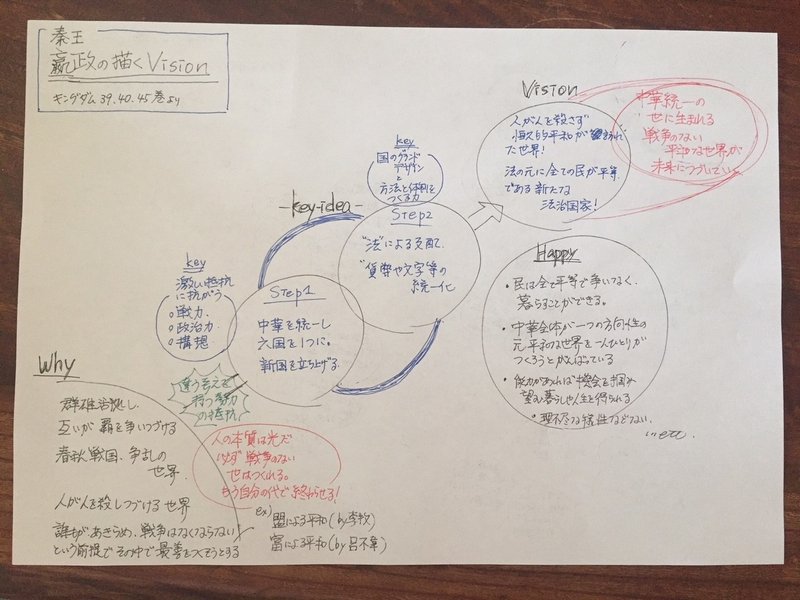 秦王
嬴政の描くVision
キングダム39.40.45巻より
Vision
人が人を殺さず
恒久的平和が訪れ
た世界!
法の元に全ての民が平等
である新たな
法治国家!
中華統一の
世に生まれる
戦争のない
平和な世界が
未来につづいていく
key
国のグランド
デザイン
と
方法と体制を
つくる力
-key-idea-
Step2
"法"による支配
"貨幣や文字等の
統一化
key
激しい抵抗
に抗がう
○戦力
○政治力
○構想
Step1
中華を統一し
六国を1つに。
新国を立ち上げる
違う考えを
持つ勢力
の抵抗
Happy
・民は全て平等で争いなく、
暮らすことができる。
・中華全体が一つの方向性の
元平和な世界を一人ひとりが
つくろうとがんばっている
・能力があれば機会を掴み
望む暮らしや人生を得られる
・理不尽な犠牲などない
...etc.
Why
群雄割拠し、
互いが覇を争いつづける
春秋戦国、争乱の
世界
人が人を殺しつづける世界
誰もがあきらめ、戦争はなくならない
という前提でその中で最善をつくそうとする
人の本質は光だ
必ず戦争のない
世はつくれる。
もう自分の代で終わらせる!
ex)
盟による平和(by李牧)
富による平和(by呂不韋)